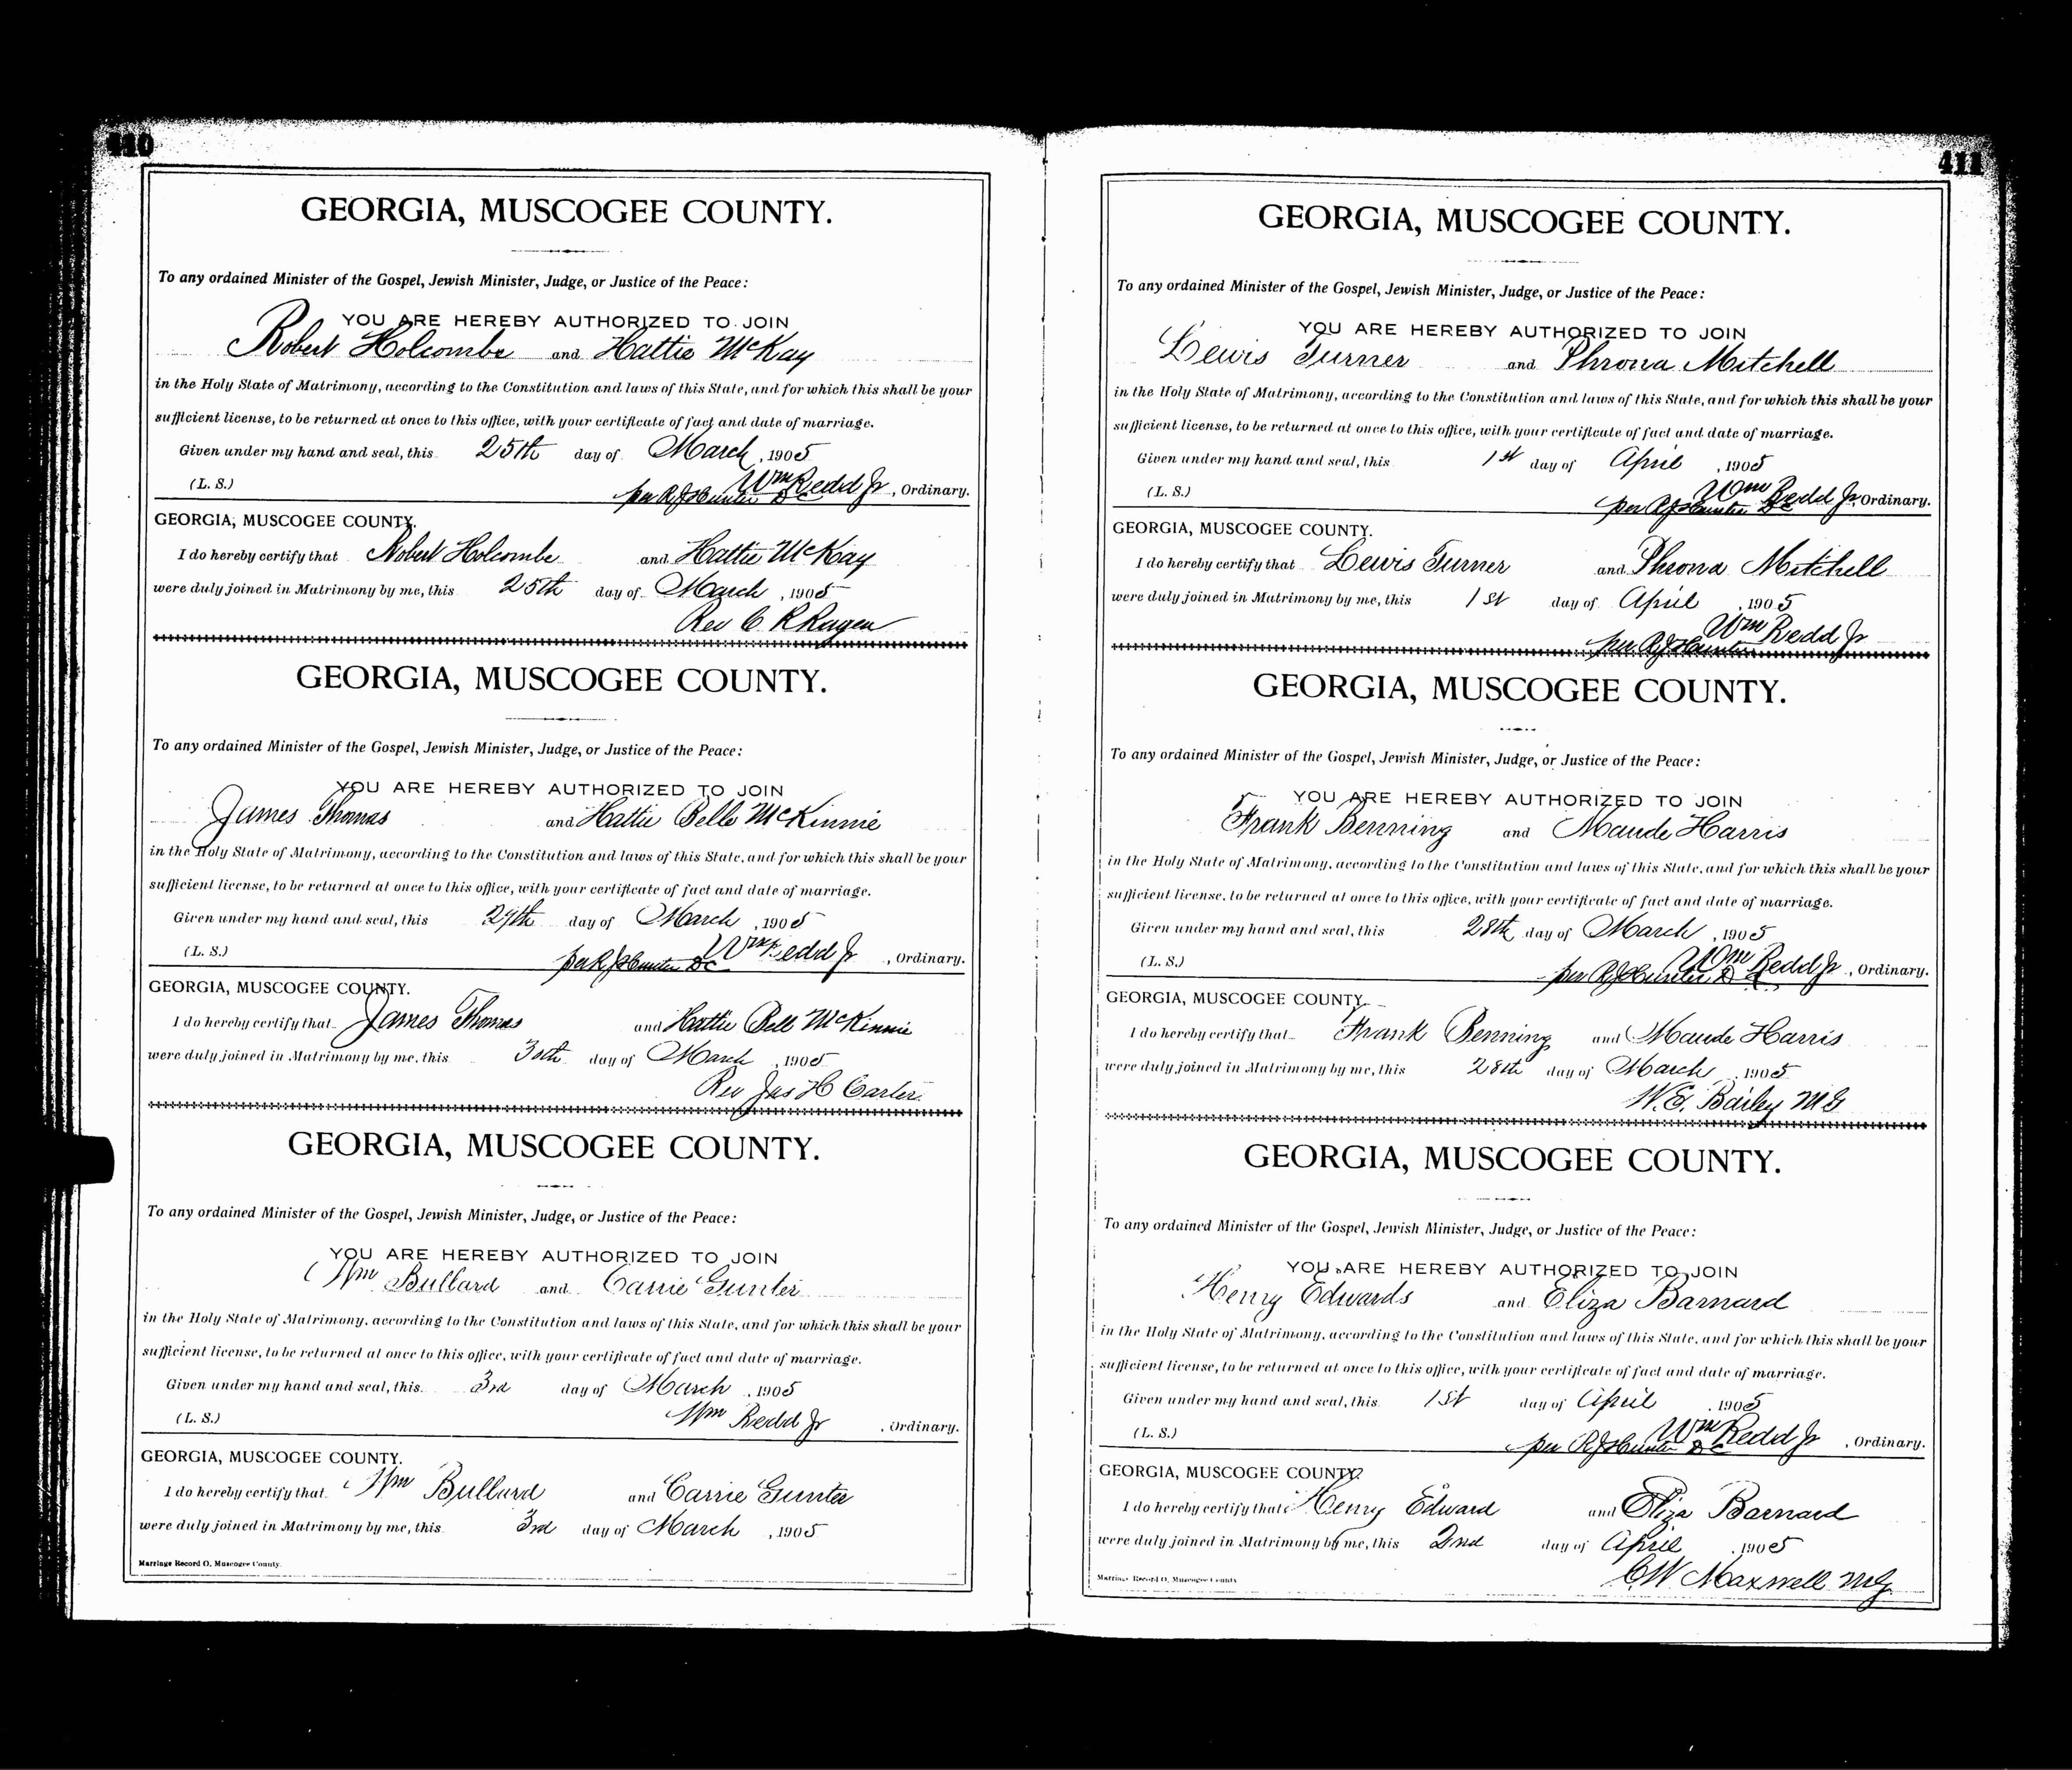 410
GEORGIA, MUSCOGEE COUNTY.
To any ordained Minister of the Gospel, Jewish Minister, Judge, or Justice of the Peace:
YOU ARE HEREBY AUTHORIZED TO JOIN
Robert Holcombe and Hattie McKay
in the Holy State of Matrimony, according to the Constitution and laws of this State, and for which this shall be your
sufficient license, to be returned at once to this office, with your certificate of fact and date of marriage.
Given under my hand and seal, this 25th day of March, 1905
(L. S.) Wm Redd Jr, Ordinary.
per R J Hunter D C
GEORGIA, MUSCOGEE COUNTY.
I do hereby certify that Robert Holcombe and Hattie McKay
were duly joined in Matrimony by me, this 25th day of March, 1905
Rev C R
GEORGIA, MUSCOGEE COUNTY.
To any ordained Minister of the Gospel, Jewish Minister, Judge, or Justice of the Peace:
YOU ARE HEREBY AUTHORIZED TO JOIN
James Thomas and Hattie Belle McKinnie
in the Holy State of Matrimony, according to the Constitution and laws of this State, and for which this shall be your
sufficient license, to be returned at once to this office, with your certificate of fact and date of marriage.
Given under my hand and seal, this day of March, 1905
(L. S.) Wm Redd Jr, Ordinary.
per R J Hunter D C
GEORGIA, MUSCOGEE COUNTY.
I do hereby certify that James Thomas and Hattie Bell McKinnie
were duly joined in Matrimony by me, this 30th day of March, 1905
Rev Jas H Carter
GEORGIA, MUSCOGEE COUNTY.
To any ordained Minister of the Gospel, Jewish Minister, Judge, or Justice of the Peace:
YOU ARE HEREBY AUTHORIZED TO JOIN
Wm Bullard and Carrie Gunter
in the Holy State of Matrimony, according to the Constitution and laws of this State, and for which this shall be your
sufficient license, to be returned at once to this office, with your certificate of fact and date of marriage.
Given under my hand and seal, this 3rd day of March, 1905
(L. S.) Wm Redd Jr, Ordinary.
GEORGIA, MUSCOGEE COUNTY.
I do hereby certify that Wm Bullard and Carrie Gunter
were duly joined in Matrimony by me, this 3rd day of March, 1905
Marriage Record O, Muscogee County.
411
GEORGIA, MUSCOGEE COUNTY.
To any ordained Minister of the Gospel, Jewish Minister, Judge, or Justice of the Peace:
YOU ARE HEREBY AUTHORIZED TO JOIN
Lewis Turner and Phrona Mitchell
in the Holy State of Matrimony, according to the Constitution and laws of this State, and for which this shall be your
sufficient license, to be returned at once to this office, with your certificate of fact and date of marriage.
Given under my hand and seal, this 1st day of April, 1905
(L. S.) Wm Redd Jr, Ordinary.
per R J Hunter D C
GEORGIA, MUSCOGEE COUNTY.
I do hereby certify that Lewis Turner and Phrona Mitchell
were duly joined in Matrimony by me, this 1st day of April, 1905
Wm Redd Jr
per R J Hunter
GEORGIA, MUSCOGEE COUNTY.
To any ordained Minister of the Gospel, Jewish Minister, Judge, or Justice of the Peace:
YOU ARE HEREBY AUTHORIZED TO JOIN
Frank Benning and Maude Harris
in the Holy State of Matrimony, according to the Constitution and laws of this State, and for which this shall be your
sufficient license, to be returned at once to this office, with your certificate of fact and date of marriage.
Given under my hand and seal, this 28th day of March, 1905
(L. S.) Wm Redd Jr, Ordinary.
per R J Hunter D C
GEORGIA, MUSCOGEE COUNTY.
I do hereby certify that Frank Benning and Maude Harris
were duly joined in Matrimony by me, this 28th day of March, 1905
W. E. Bailey M G
GEORGIA, MUSCOGEE COUNTY.
To any ordained Minister of the Gospel, Jewish Minister, Judge, or Justice of the Peace:
YOU ARE HEREBY AUTHORIZED TO JOIN
Henry Edwards and Eliza Barnard
in the Holy State of Matrimony, according to the Constitution and laws of this State, and for which this shall be your
sufficient license, to be returned at once to this office, with your certificate of fact and date of marriage.
Given under my hand and seal, this 1st day of April, 1905
(L. S.) Wm Redd Jr, Ordinary.
per R J Hunter D C
GEORGIA, MUSCOGEE COUNTY.
I do hereby certify that Henry Edward and Eliza Barnard
were duly joined in Matrimony by me, this 2nd day of April, 1905
C W Maxwell M G
Marriage Record O, Muscogee County